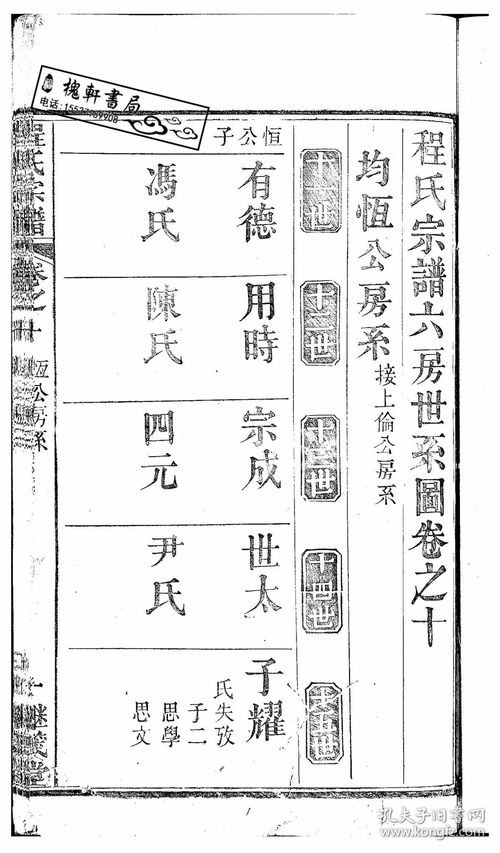 程氏宗譜六房世系圖卷之十
均恆公房系 接上倫公房系
十一世
十二世
十三世
十四世
十五世
恒公子
有德
馮氏
用時
陳氏
宗成
四元
世太
尹氏
子耀
氏失攷
子二
思學
思文
程氏宗譜
卷之十
恆公房系
一
槐軒書局
孔夫子旧书网
www.kongfz.com